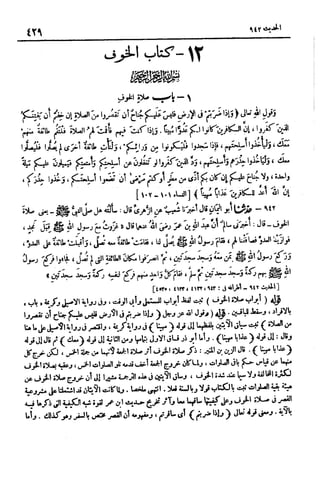 الحديث ٩٤٢ ٤٢٩
١٢ - كتاب الخوف
بسم الله الرحمن الرحيم
١ - باب صلاة الخوف
وقول الله تعالى ﴿وإذا ضربتم في الأرض فليس عليكم جناح أن تقصروا من الصلاة إن خفتم أن يفتنكم
الذين كفروا، إن الكافرين كانوا لكم عدوا مبينا. وإذا كنت فيهم فأقمت لهم الصلاة فلتقم طائفة منهم
معك، وليأخذوا أسلحتهم، فإذا سجدوا فليكونوا من ورائكم، ولتأت طائفة أخرى لم يصلوا فليصلوا
معك، وليأخذوا حذرهم وأسلحتهم، ود الذين كفروا لو تغفلون عن أسلحتكم وأمتعتكم فيميلون عليكم ميلة
واحدة، ولا جناح عليكم إن كان بكم أذى من مطر أو كنتم مرضى أن تضعوا أسلحتكم، وخذوا حذركم،
إن الله أعد للكافرين عذابا مهينا﴾ [النساء ١٠١ - ١٠٢]
٩٤٢ - حدثنا أبو اليمان قال أخبرنا شعيب عن الزهري قال: سألته هل صلى النبي ﷺ - يعني صلاة
الخوف - قال: أخبرني سالم أن عبد الله بن عمر رضي الله عنهما قال «غزوت مع رسول الله ﷺ قبل نجد،
فوازينا العدو فصاففنا لهم، فقام رسول الله ﷺ يصلي لنا، فقامت طائفة معه تصلي، وأقبلت طائفة على العدو،
وركع رسول الله ﷺ بمن معه وسجد سجدتين، ثم انصرفوا مكان الطائفة التي لم تصل، فجاءوا فركع رسول
الله ﷺ بهم ركعة وسجد سجدتين ثم سلم، فقام كل واحد منهم فركع لنفسه ركعة وسجد سجدتين»
[الحديث ٩٤٢ - أطرافه في: ٩٤٣، ٤١٣٢، ٤١٣٣، ٤٥٣٥]
قوله (أبواب صلاة الخوف) ثبت لفظ أبواب للمستملي وأبي الوقت، وفي رواية الأصيلي وكريمة «باب»
بالإفراد، وسقط للباقين. قوله (وقول الله عز وجل ﴿وإذا ضربتم في الأرض فليس عليكم جناح أن تقصروا
من الصلاة﴾) ثبت سياق الآيتين بلفظهما إلى قوله ﴿مهينا﴾ في رواية كريمة، واقتصر في رواية الأصيلي على ما هنا
وقال: إلى قوله ﴿عذابا مهينا﴾. وأما أبو ذر فساق الأولى بتمامها ومن الثانية إلى قوله ﴿معك﴾ ثم قال إلى قوله
﴿عذابا مهينا﴾. قال الزين بن المنير: ذكر صلاة الخوف أثر صلاة الجمعة لأنهما من جملة الخمس، لكن خرج كل
منهما عن قياس حكم باقي الصلوات، ولما كان خروج الجمعة أخف قدمه تلو الصلوات الخمس، وعقبه بصلاة الخوف
لكثرة المخالفة ولا سيما عند شدة الخوف، وساق الآيتين في هذه الترجمة مشيرا إلى أن خروج صلاة الخوف عن
هيئة بقية الصلوات ثبت بالكتاب قولا وبالسنة فعلا. انتهى ملخصا. ولما كانت الآيتان قد اشتملتا على مشروعية
القصر في صلاة الخوف وعلى كيفيتها ساقهما معا وآثر تخريج حديث ابن عمر لقوة شبه الكيفية التي ذكرها فيه
بالآية. ومعنى قوله تعالى ﴿وإذا ضربتم﴾ أي سافرتم، ومفهومه أن القصر مختص بالسفر وهو كذلك. وأما